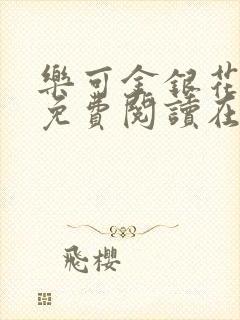 樂可金銀花
免費閱讀在
飛櫻